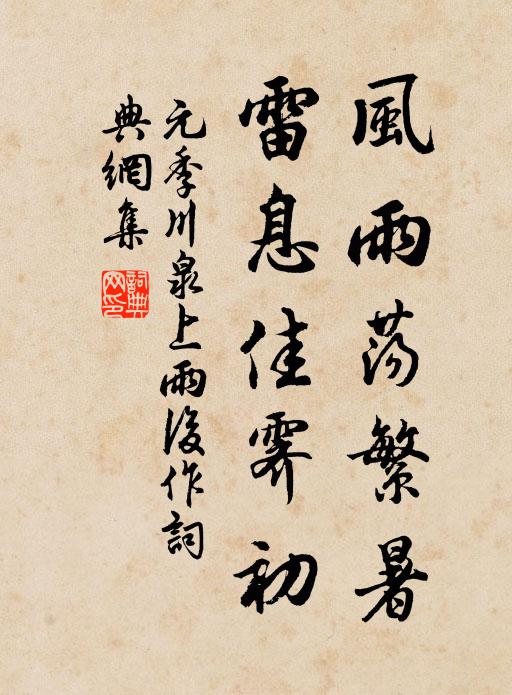 風雨荡繁暑
雷息佳霁初
元季川泉上雨後作詞
典網集
詞典
网印